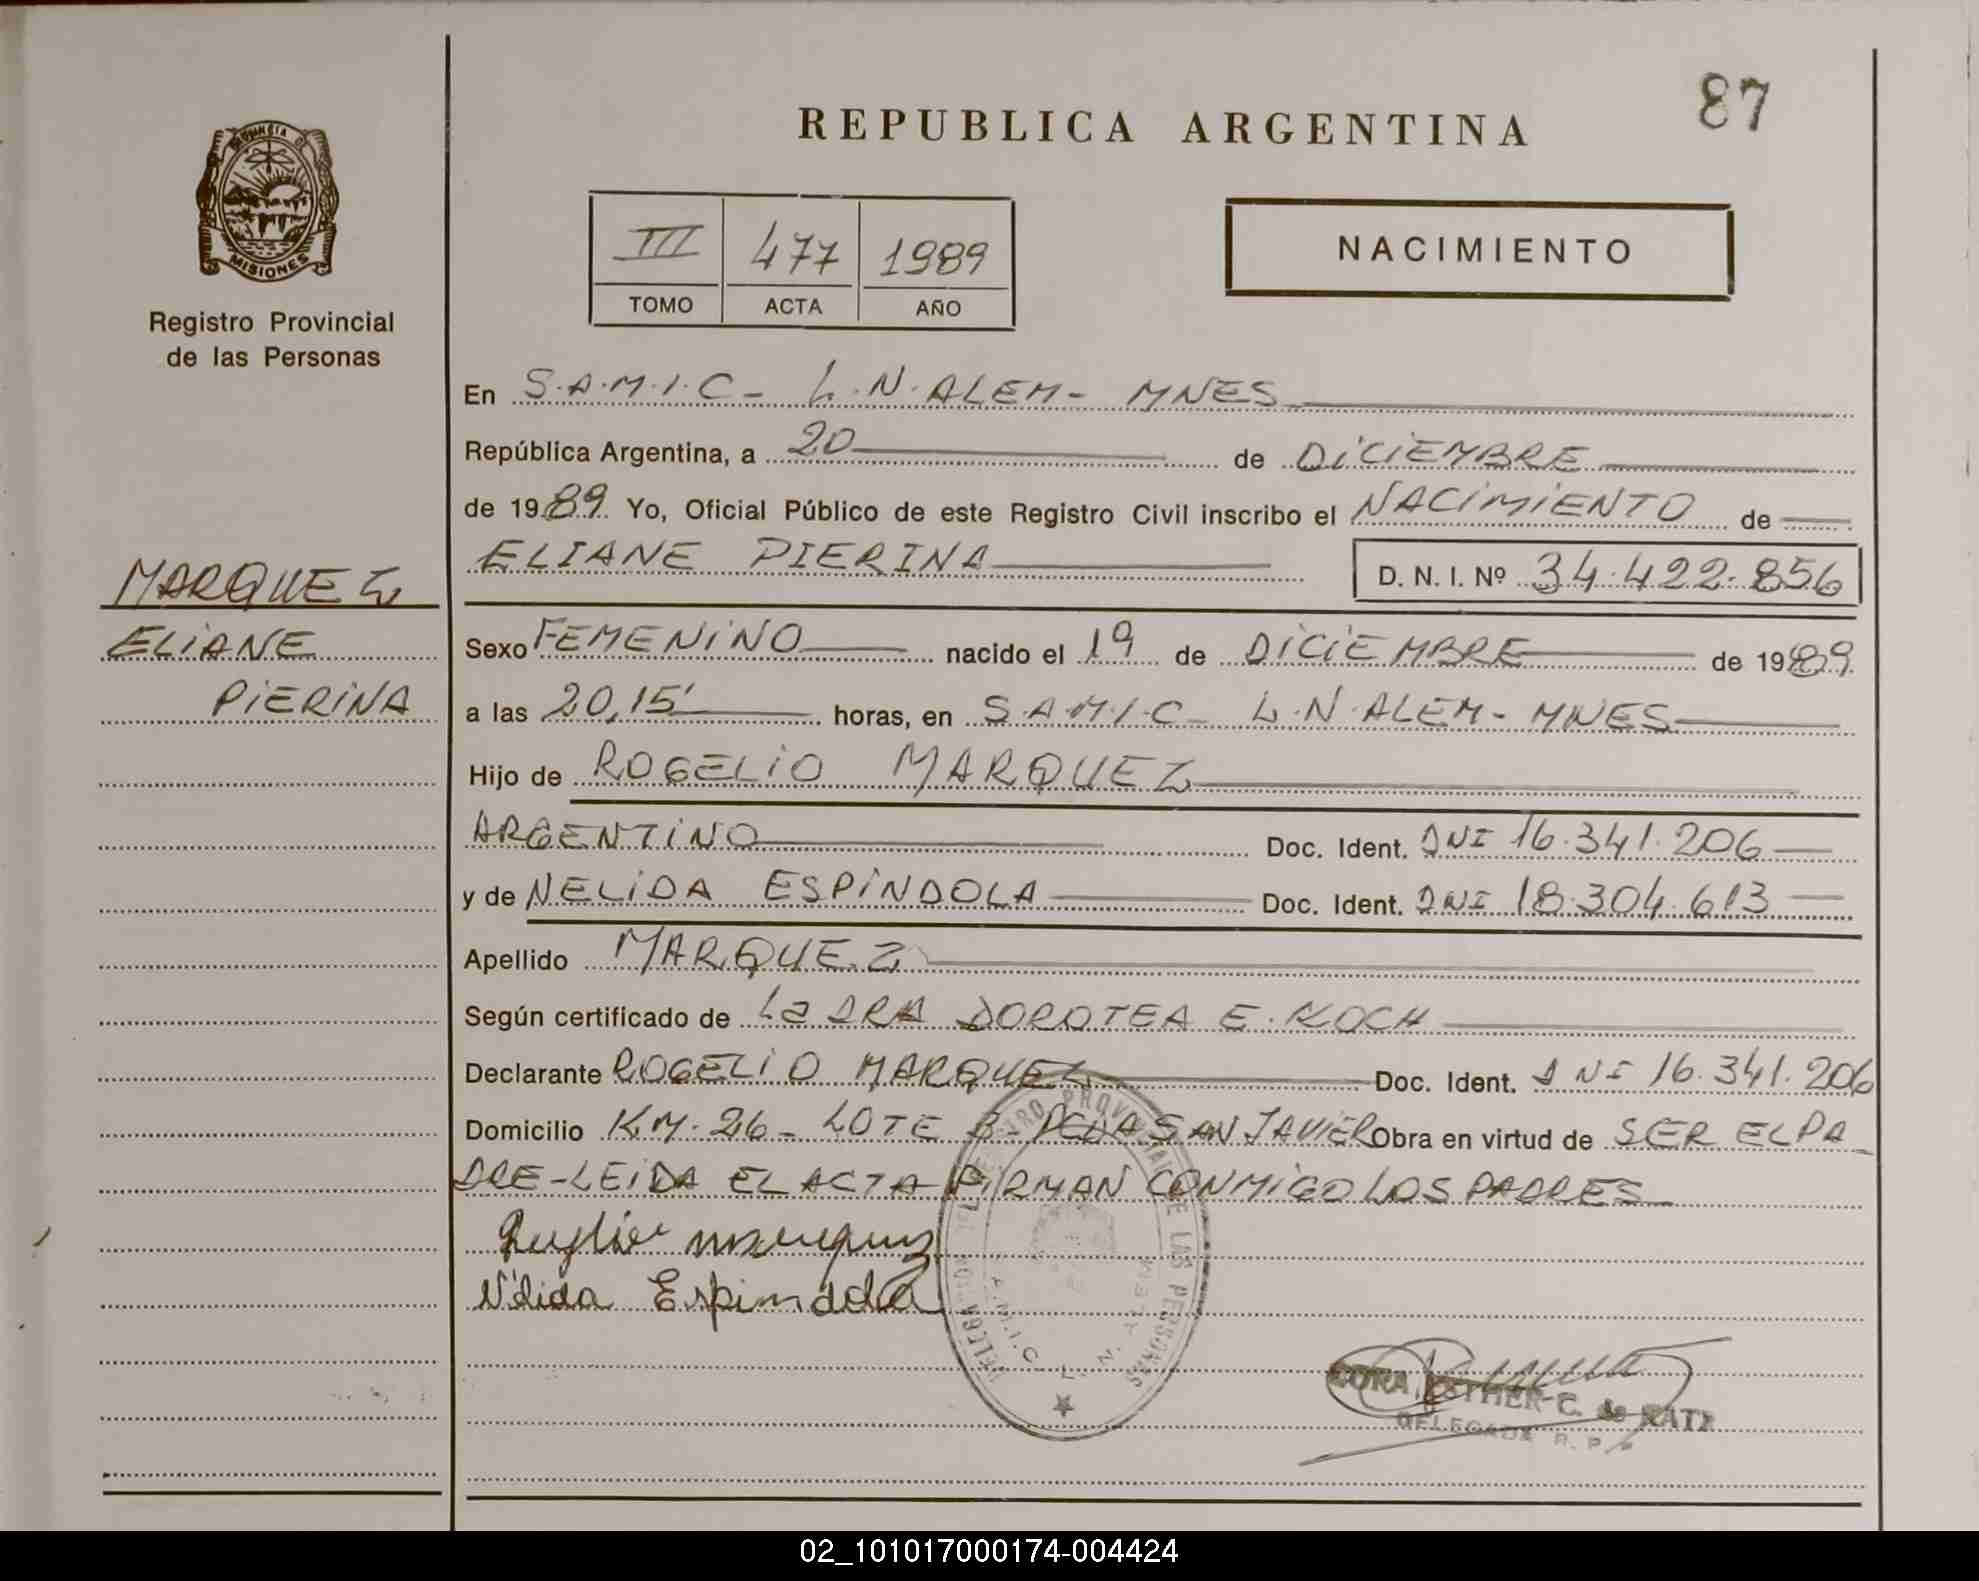 87
REPUBLICA ARGENTINA
PROVINCIA D
MISIONES
Registro Provincial
de las Personas
III 477 1989
TOMO ACTA AÑO
NACIMIENTO
En S.A.M.I.C - L.N.ALEM - MNES
República Argentina, a 20 de DICIEMBRE
de 1989 Yo, Oficial Público de este Registro Civil inscribo el NACIMIENTO de
ELIANE PIERINA D. N. I. Nº 34.422.856
MARQUEZ
ELIANE
PIERINA
Sexo FEMENINO nacido el 19 de DICIEMBRE de 1989
a las 20,15' horas, en S.A.M.I.C - L.N.ALEM - MNES
Hijo de ROGELIO MARQUEZ
ARGENTINO Doc. Ident. DNI 16.341.206
y de NELIDA ESPINDOLA Doc. Ident. DNI 18.304.613
Apellido MARQUEZ
Según certificado de La DRA DOROTEA E. KOCH
Declarante ROGELIO MARQUEZ Doc. Ident. DNI 16.341.206
Domicilio KM.26 - LOTE SAN JAVIER Obra en virtud de SER EL PA
DRE - LEIDA EL ACTA FIRMAN CONMIGO LOS PADRES
marquez
Nélida Espindola
DELEGACION REGISTRO PROVINCIAL DE LAS PERSONAS
S.A.M.I.C. L. N. ALEM
ESTHER C. de RATZ
DELEGADA R. P. P.
02_101017000174-004424